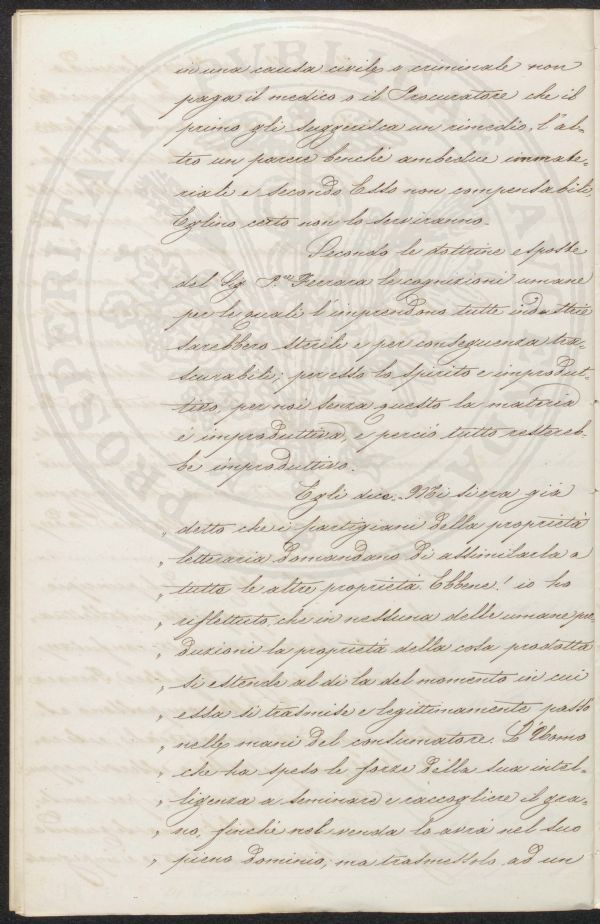 in una causa civile o criminale non
paga il medico o il Procuratore che il
primo gli suggerisca un rimedio, l'al-
tro un parere benchè ambedue immate-
riale e secondo Esso non compensabile,
Eglino certo non lo serviranno.
Secondo le dottrine esposte
dal Sig. P.re Ferrara le cognizioni umane
per le quale s'imprendono tutte industrie
sarebbero sterili e per conseguenza tra-
scurabili; per esso lo spirito è improdut-
tivo, per noi senza questo la materia
è improduttiva, e perciò tutto restereb-
be improduttivo.
Egli dice. Mi si era già
„ detto che i partigiani della proprietà
„ letteraria domandano di assimilarla a
„ tutte le altre proprietà. Ebbene! io ho
„ riflettuto, che in nessuna delle umane pro-
„ duzioni la proprietà della cosa prodotta
„ si estende al di la del momento in cui
„ essa si trasmise e legittimamente passò
„ nelle mani del consumatore. L'Uomo
„ che ha speso le forze della sua intel-
„ ligenza a seminare e raccogliere il gra-
„ no, finchè nol venda lo avrà nel suo
„ pieno dominio, ma trasmessolo ad un
PROSPERITATI PVBLICAE AVGENDAE